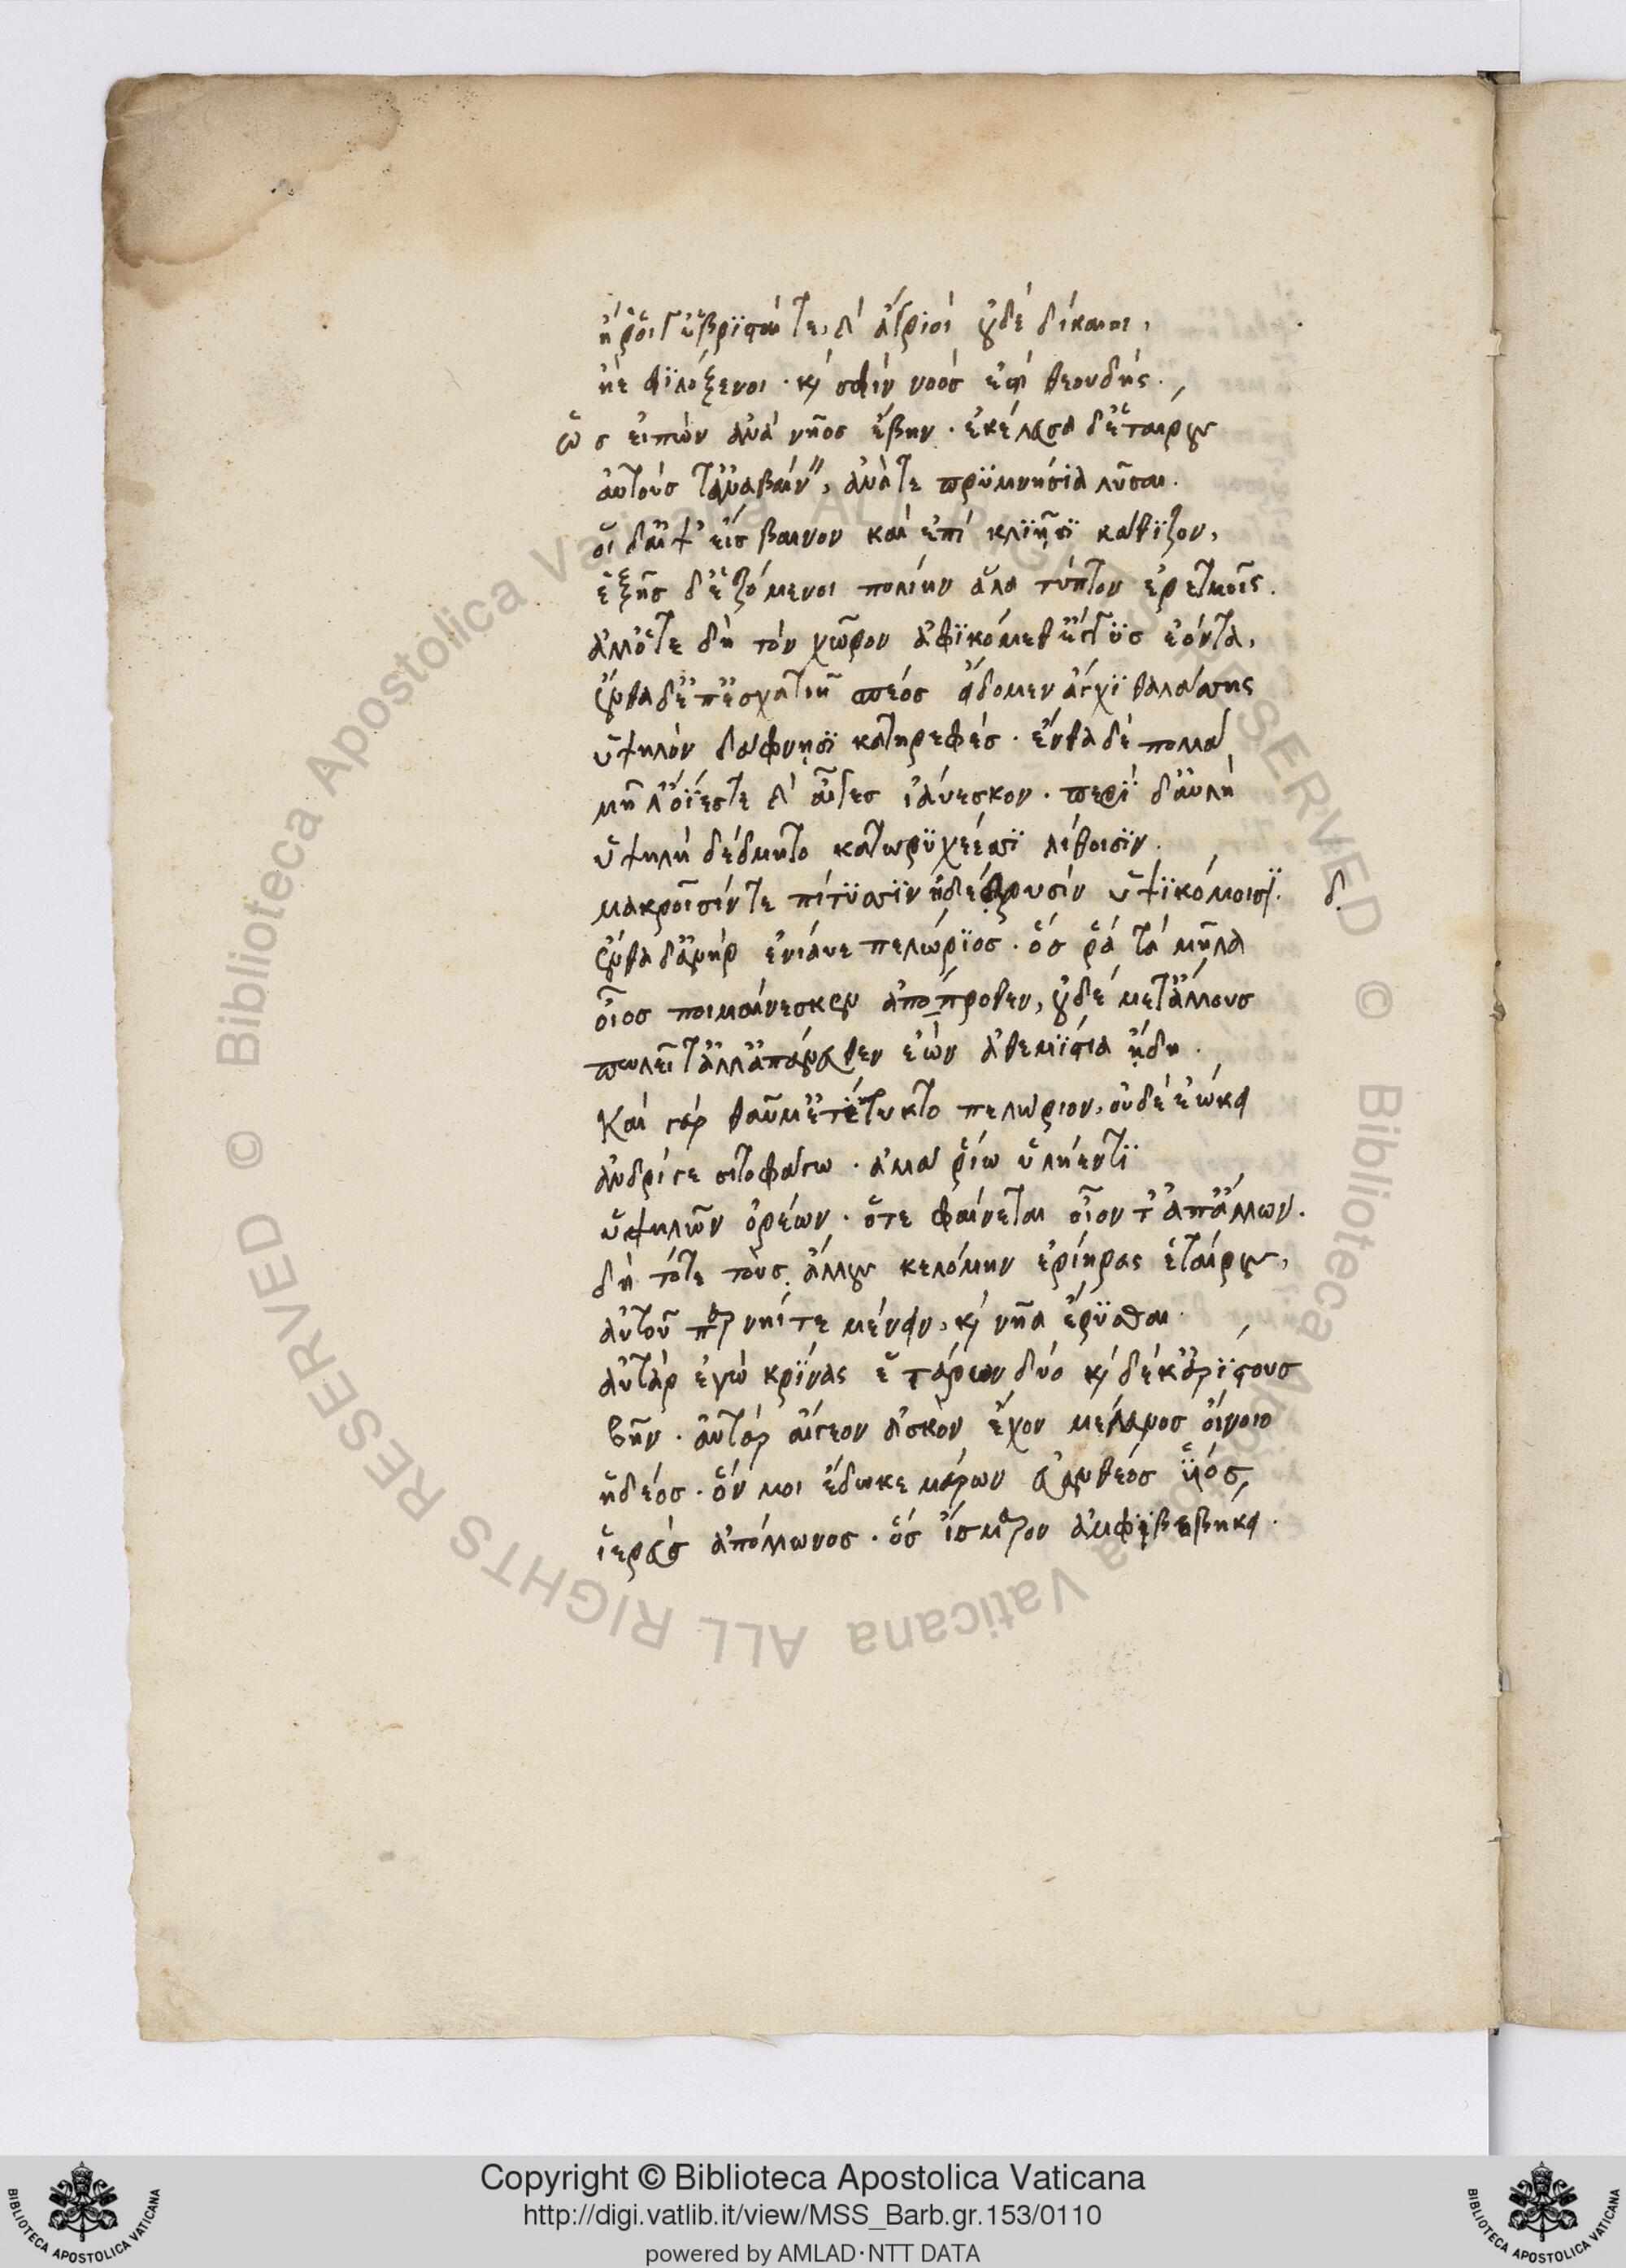 ἤ ῥ' οἵ γ' ὑβρϊσταί τε, καὶ ἄγριοι οὐδὲ δίκαιοι,
ἠὲ φϊλόξενοι · καί σφιν νοός ἐστὶ θεουδής.
ὣς εἰπὼν ἀνὰ νηὸς ἔβην · ἐκέλευσα δ' ἑταίρους
αὐτούς τ' ἀμβαίνειν, ἀνά τε πρϋμνήσϊα λῦσαι.
οἱ δ' αἶψ' εἴσβαινον καὶ ἐπὶ κλϊῆϊσϊ κάθϊζον,
ἑξῆς δ' ἑζόμενοι πολιὴν ἅλα τύπτον ἐρετμοῖς.
ἀλλ' ὅτε δὴ τὸν χῶρον ἀφϊκόμεθ' ἐγγϋς ἐόντα,
ἔνθα δ' ἐπ' ἐσχατιῆ σπέος εἴδομεν ἄγχϊ θαλάσσης
ὑψηλὸν δάφνῃσϊ κατηρεφές · ἔνθα δὲ πολλὰ
μῆλ' ὄϊές τε καὶ αἶγες ἰαύεσκον · περὶ δ' αὐλὴ
ὑψηλὴ δέδμητο κατωρϋχέεσσϊ λίθοισϊν.
μακροῖσίν τε πίτϋσσϊν ἠδὲ δρυσὶν ὑψϊκόμοισϊ. δ.
ἔνθα δ' ἀνὴρ ἐνίαυε πελώρϊος · ὅς ῥα τὰ μῆλα
οἶος ποιμαίνεσκεν ἀπόπροθεν, οὐδὲ μετ' ἄλλους
πωλεῖτ' ἀλλ' ἀπάνευθεν ἐὼν ἀθεμίστια ᾔδη.
Καὶ γὰρ θαῦμ' ἐτέτυκτο πελώριον, οὐδὲ ἐώκει
ἀνδρί γε σιτοφάγω · ἀλλὰ ῥίω ὑλήεντϊ
ὑψηλῶν ὀρέων · ὅτε φαίνεται οἶον τ' ἀπ' ἄλλων.
δὴ τότε τοὺς ἄλλους κελόμην ἐρίηρας ἑταίρους,
αὐτοῦ πὰρ νηί τε μένειν, καὶ νῆα ἔρϋσθαι.
αὐτὰρ ἐγὼ κρίνας ἑτάρων δύο καὶ δέκ' ἀρίστους
βῆν · αὐτὰρ αἴγεον ἀσκὸν ἔχον μέλανος οἴνοιο
ἡδέος · ὅν μοι ἔδωκε μάρων εὐανθέος ϋἱός,
ἱερεὺς ἀπόλλωνος · ὃς ἴσμαρον ἀμφϊβεβήκει.
Copyright © Biblioteca Apostolica Vaticana
http://digi.vatlib.it/view/MSS_Barb.gr.153/0110
powered by AMLAD·NTT DATA
© Biblioteca Apostolica Vaticana ALL RIGHTS RESERVED
© Biblioteca Apostolica Vaticana ALL RIGHTS RESERVED
BIBLIOTECA APOSTOLICA VATICANA
BIBLIOTECA APOSTOLICA VATICANA